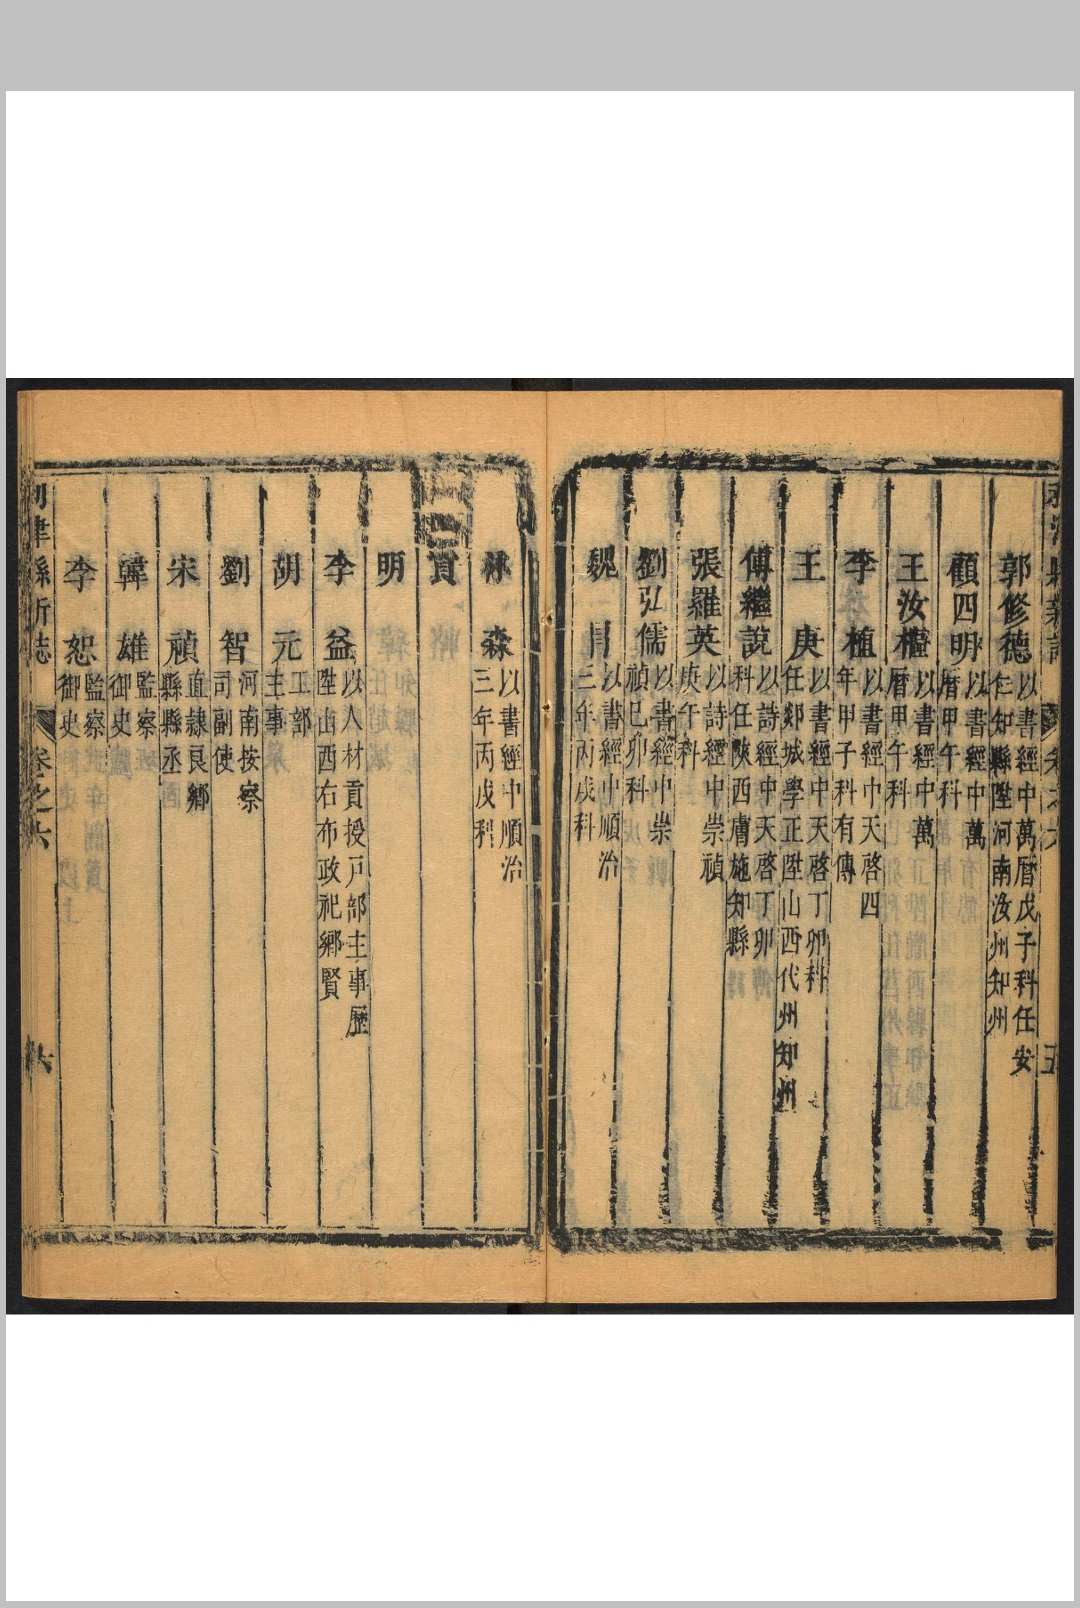 郭修德 以書經中萬曆戊子科任安
仁知縣陞河南汝州知州
顧四明 以書經中萬
曆甲午科
王汝櫃 以書經中萬
曆甲午科
李植 以書經中天啓四
年甲子科有傳
王庚 以書經中天啓丁卯科
任郯城學正陞山西代州知州
傅繼說 以詩經中天啓丁卯
科任陝西膚施知縣
張羅英 以詩經中崇禎
庚午科
劉弘儒 以書經中崇
禎己卯科
魏 以書經中順治
三年丙戌科
林森 以書經中順治
三年丙戌科
貢
明
李益 以人材貢授戶部主事歷
陞山西右布政祀鄉賢
胡元 工部
主事
劉智 河南按察
司副使
宋禎 直隸良鄉
縣縣丞
韓雄 監察
御史
李恕 監察
御史
利津縣新誌 卷之六 六